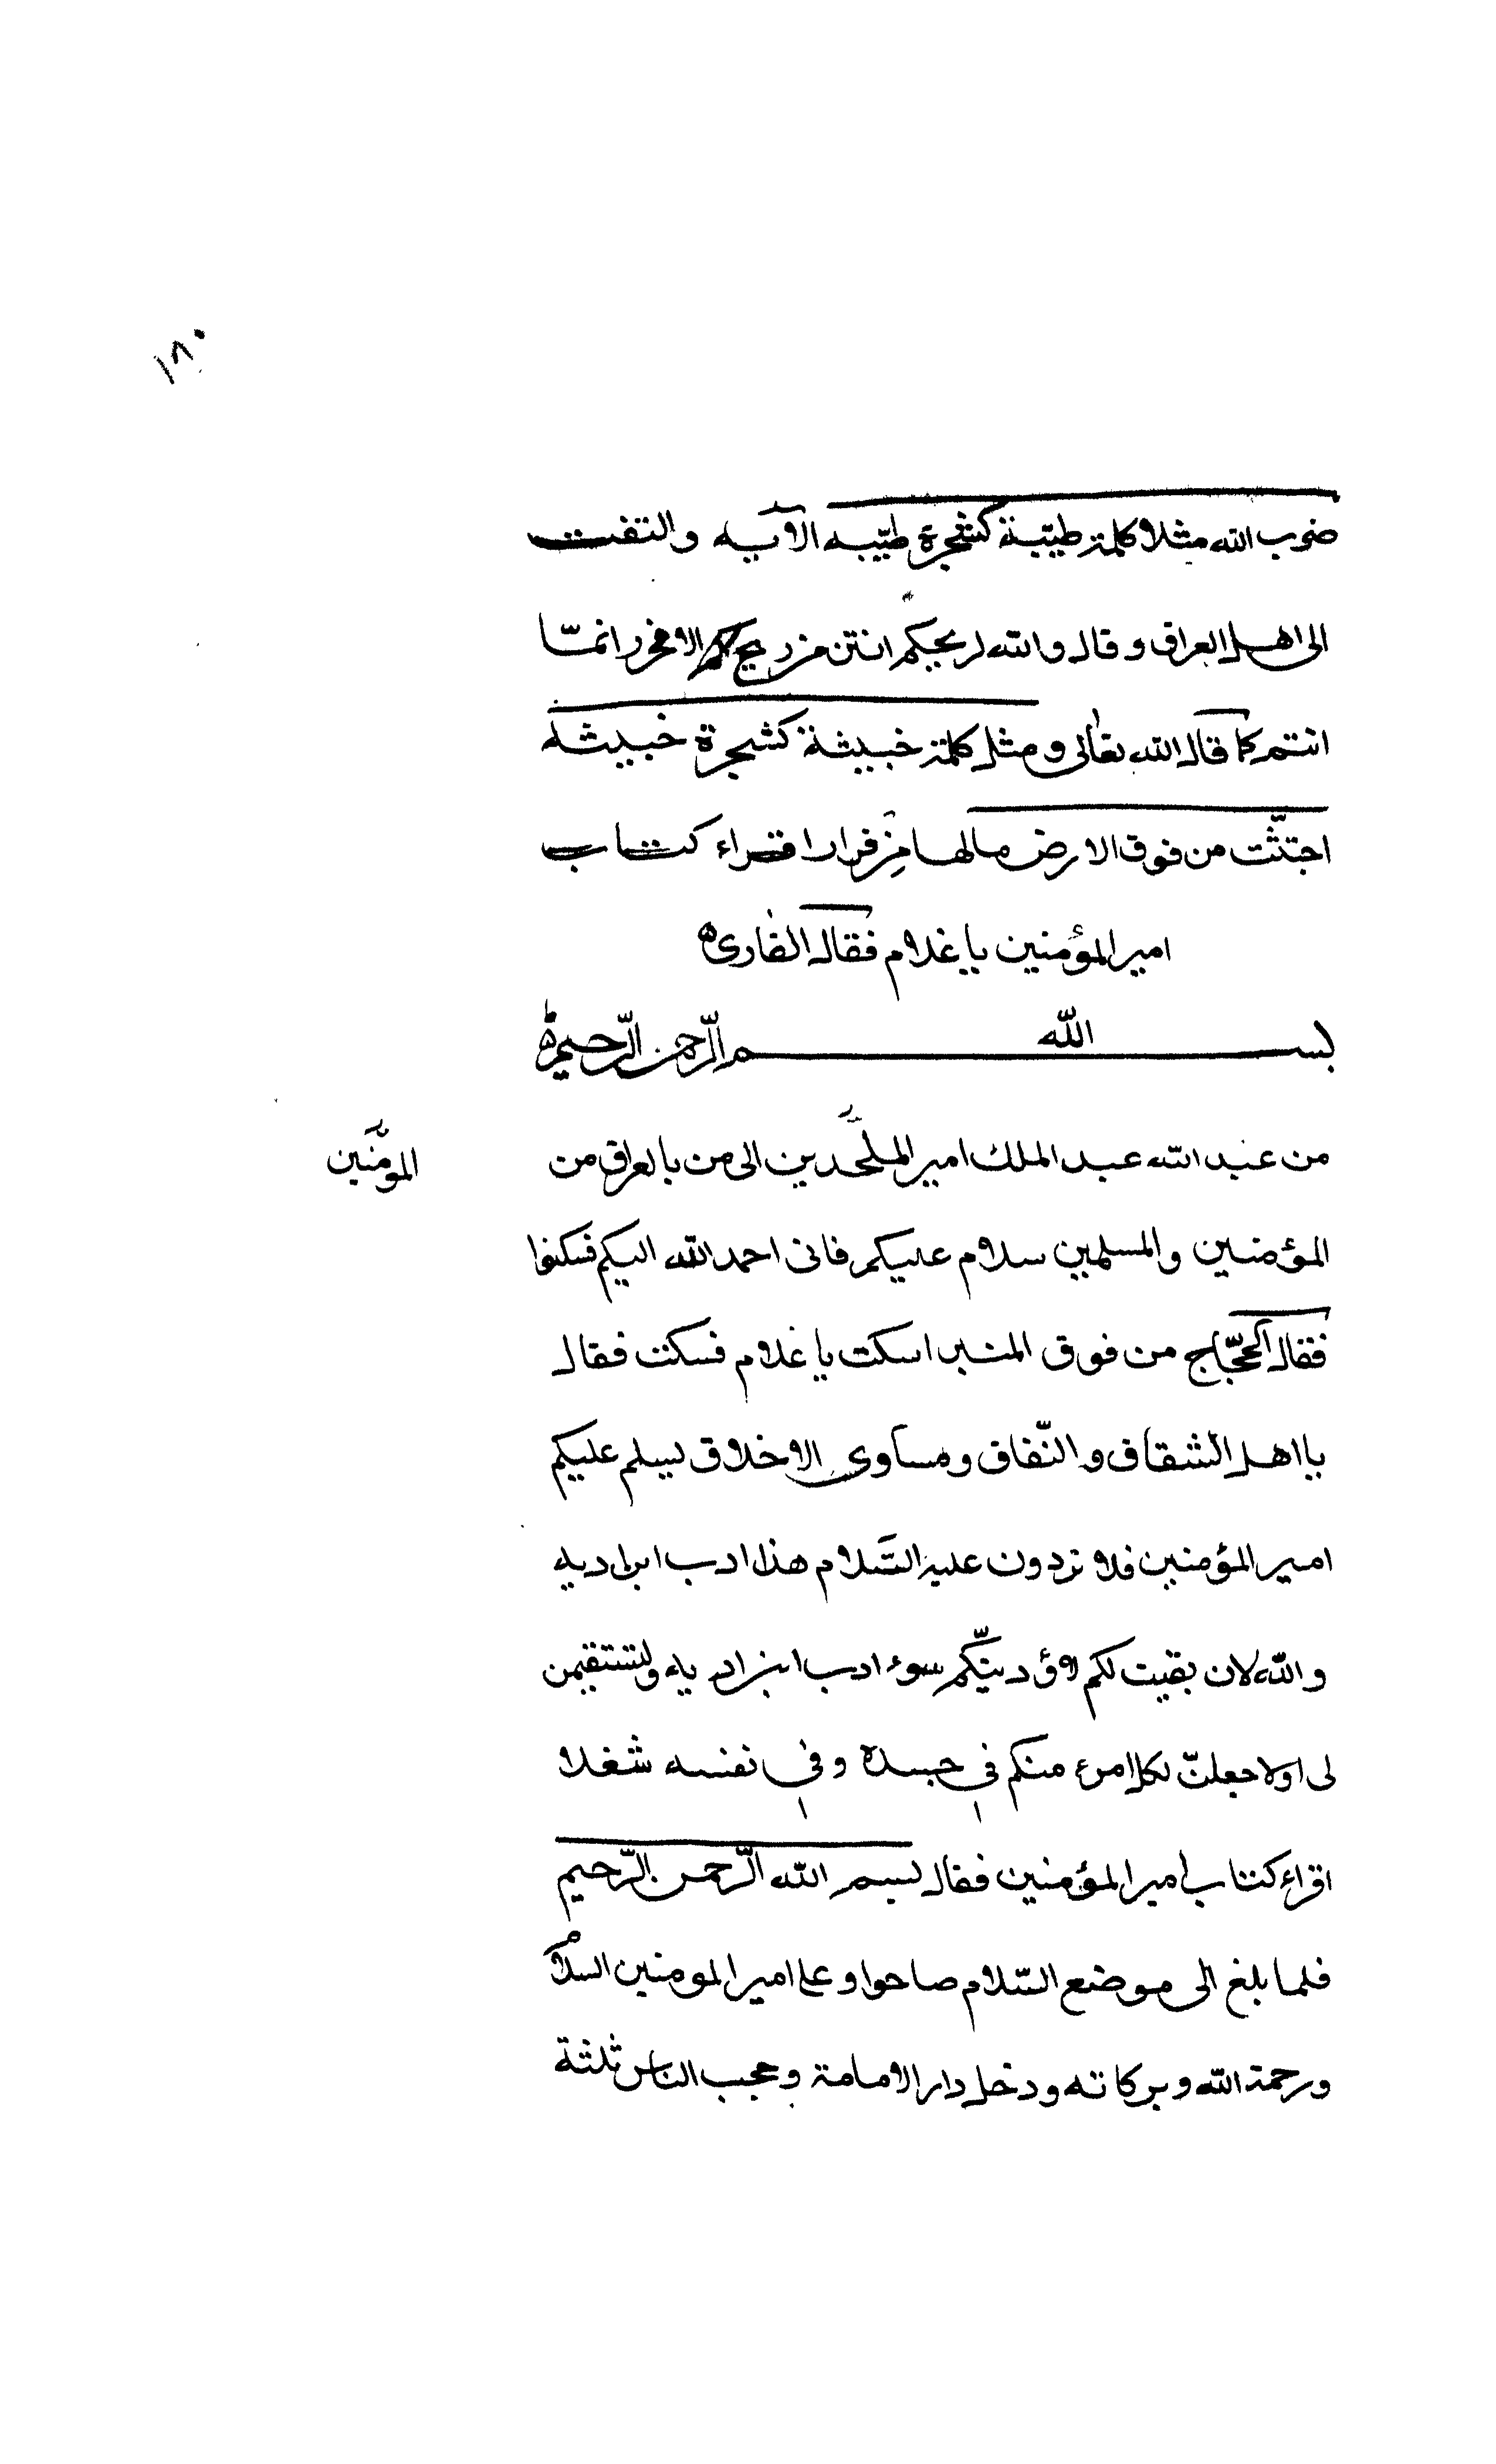 ١٨٠
ضرب الله مثلا كلمة طيّبة كشجرة طيّبه الآيه والتفت
الى اهل العراق وقال والله لريحكم انتن من ريح الابخر انمّا
انتم كما قال الله تعالى ومثل كلمة خبيثة كشجرة خبيثه
اجتثّت من فوق الارض مالها من قرار اقراء كتاب
امير المؤمنين يا غلام فقال القارئ
بسم الله الرّحمن الرّحيم
من عبد الله عبد الملك امير الملحدين الى من بالعراق من
المومنين
المؤمنين والمسلمين سلام عليكم فانى احمد الله اليكم فسكتوا
فقال الحجّاج من فوق المنبر اسكت يا غلام فسكت فقال
يا اهل الشقاق والنّفاق ومساوى الاخلاق يسلم عليكم
امير المؤمنين فلا تردون عليه السّلام هذا ادب ابن اديه
والله لان بقيت لكم لاؤدبنّكم سوء ادب ابن اد يه ولتستقيمن
لى اولاجعلنّ لكل امرء منكم في جسده وفي نفسه شغلا
اقراء كتاب امير المؤمنين فقال بسم الله الرّحمن الرّحيم
فلما بلغ الى موضع السّلام صاحوا وعلى امير المومنين السلام
ورحمة الله وبركاته ودخل دار الامامة وحجب الناس ثلثة